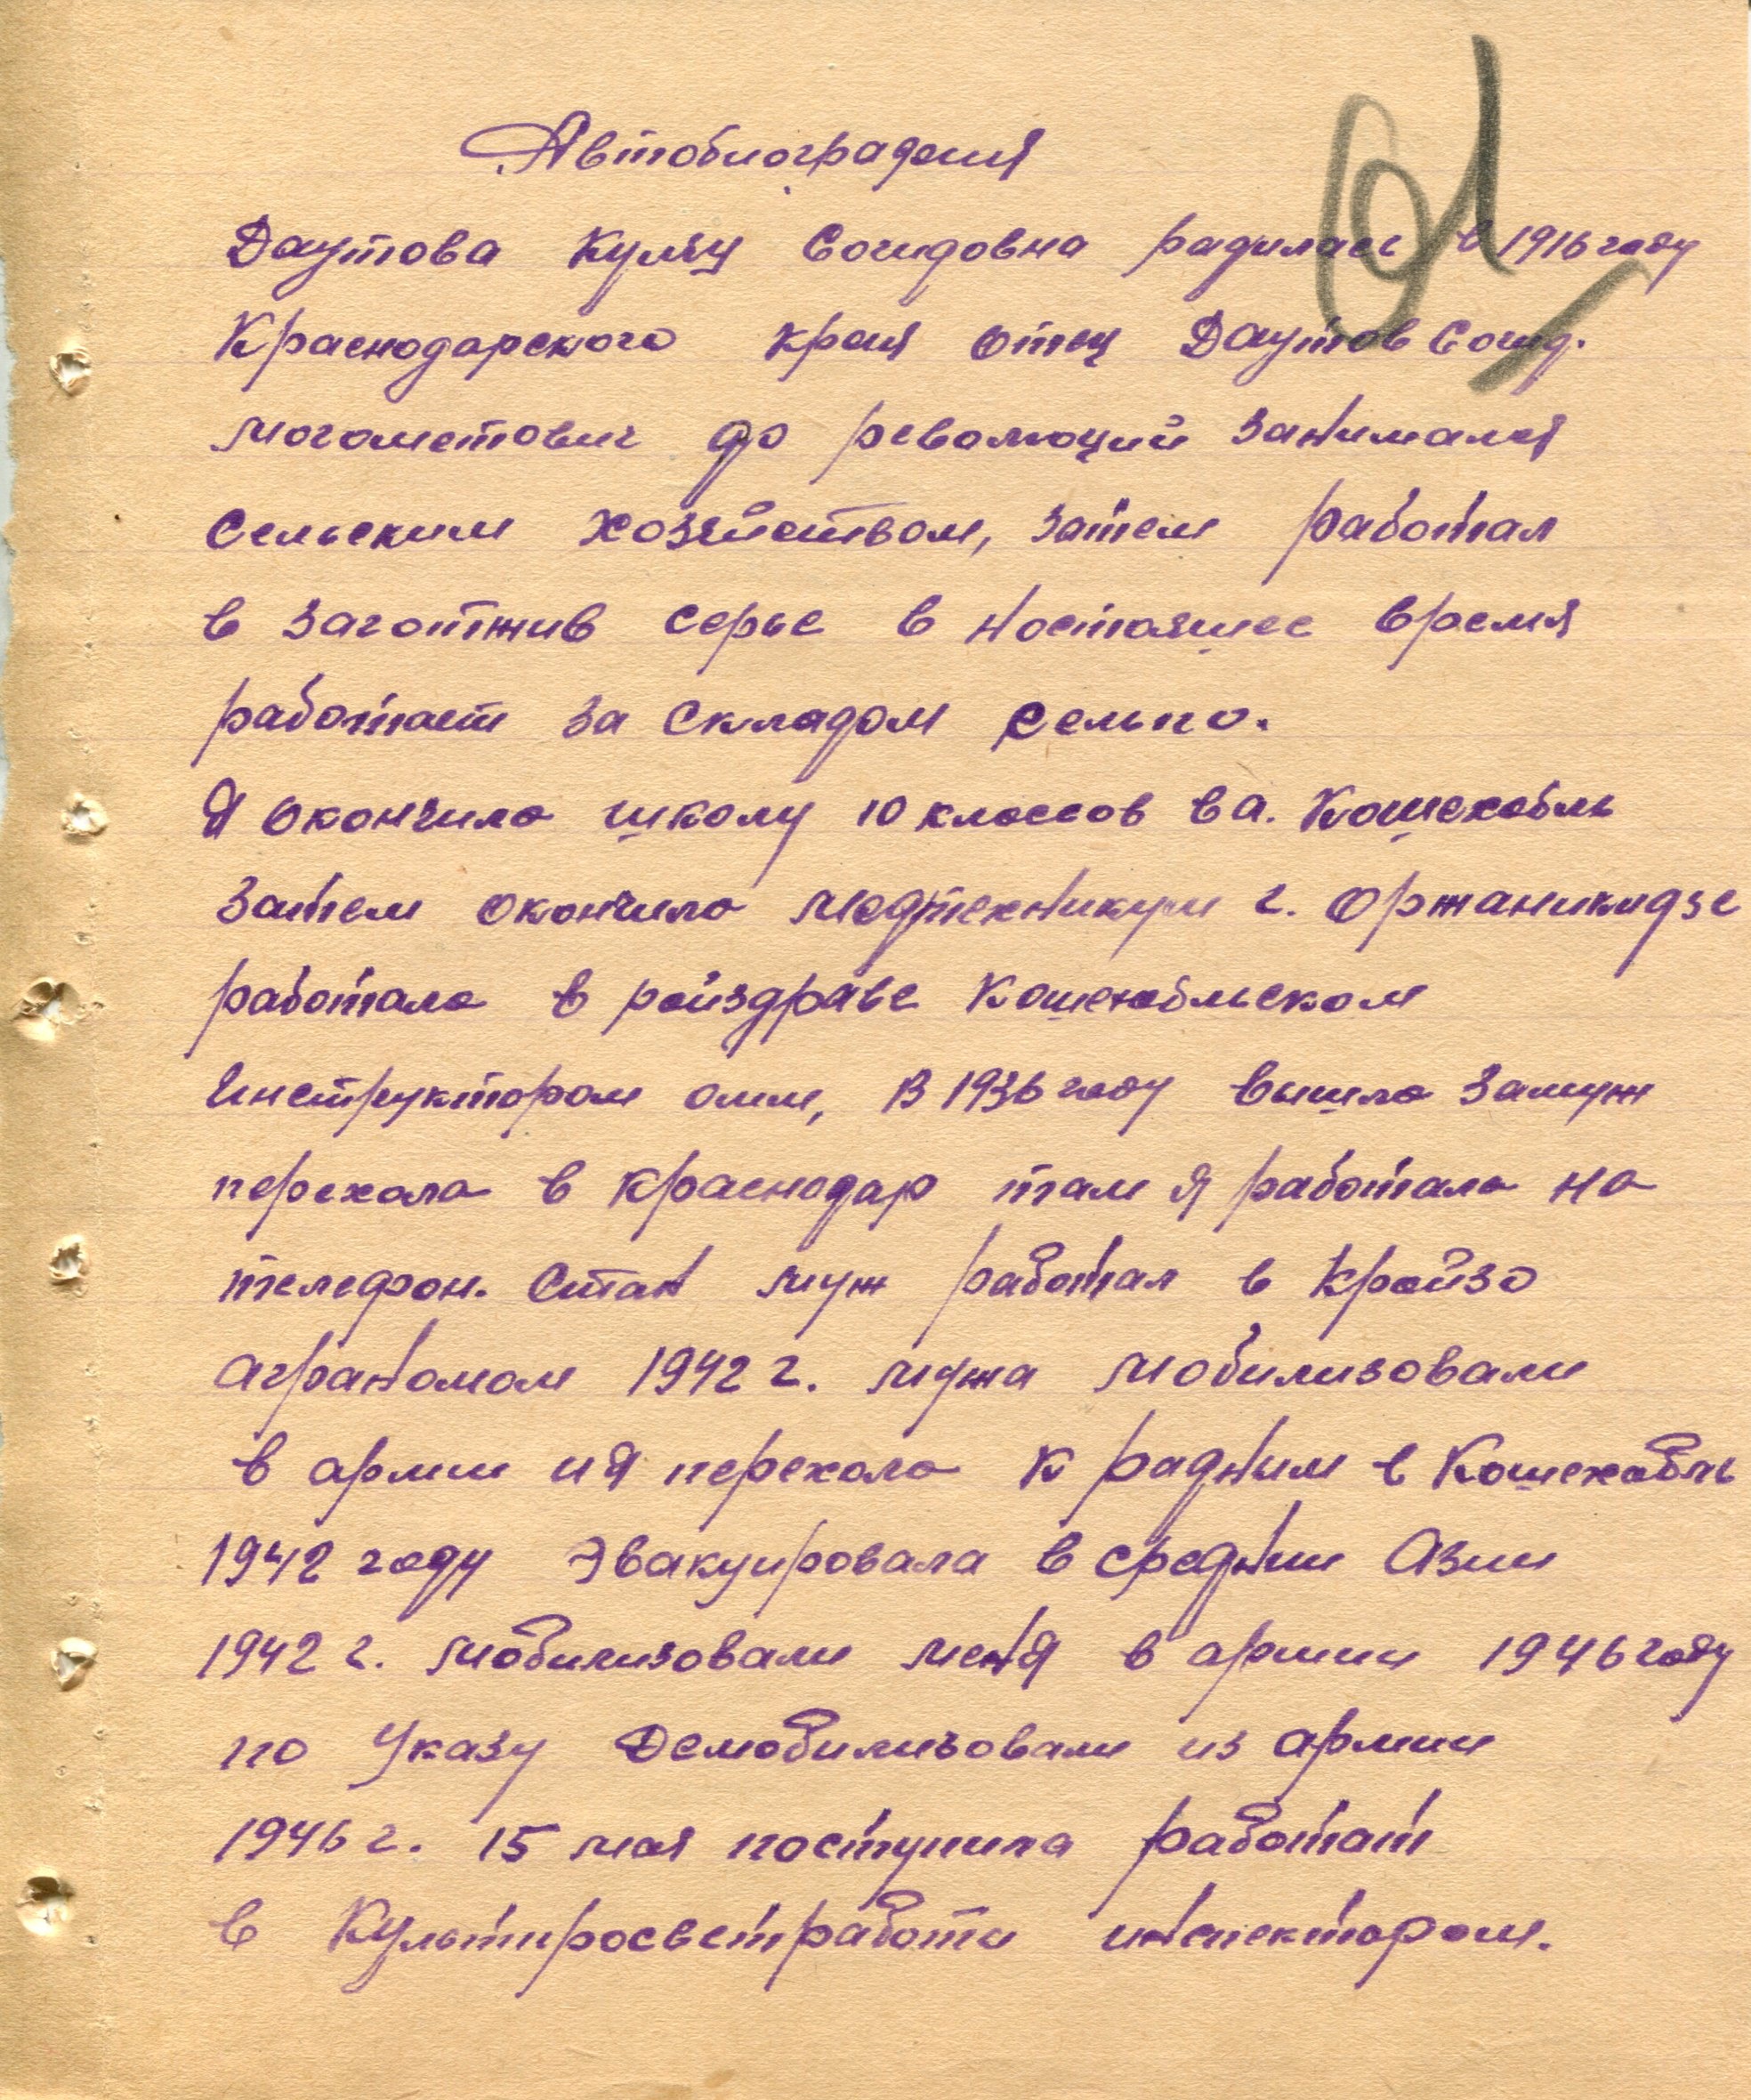 61
Автобиография
Даутова Куляц Сагидовна радилась в 1916 году
Краснодарского края отец Даутов Сагид.
Магометович до революций занимался
сельским хозяйством, затем работал
в заготжив серье в ностоящее время
работает за складом сельпо.
Я окончила школу 10 классов в а. Кошехабль
затем окончила медтехникум г. Оржаникидзе
работала в райздраве Кошехабльском
Инструктором омм, В 1936 году вышла замуж
перехала в Краснодар там я работала на
телефон. Стан муж работал в Крайзо
аграномом 1942 г. мужа мобилизовали
в армии и я перехала к радним в Кошехабль
1942 году Эвакуировала в средний Азии
1942 г. мобилизовали меня в армии 1946 году
по Указу Демобилизовали из армии
1946 г. 15 мая поступила работат
в Культпросветработи инспектаром.